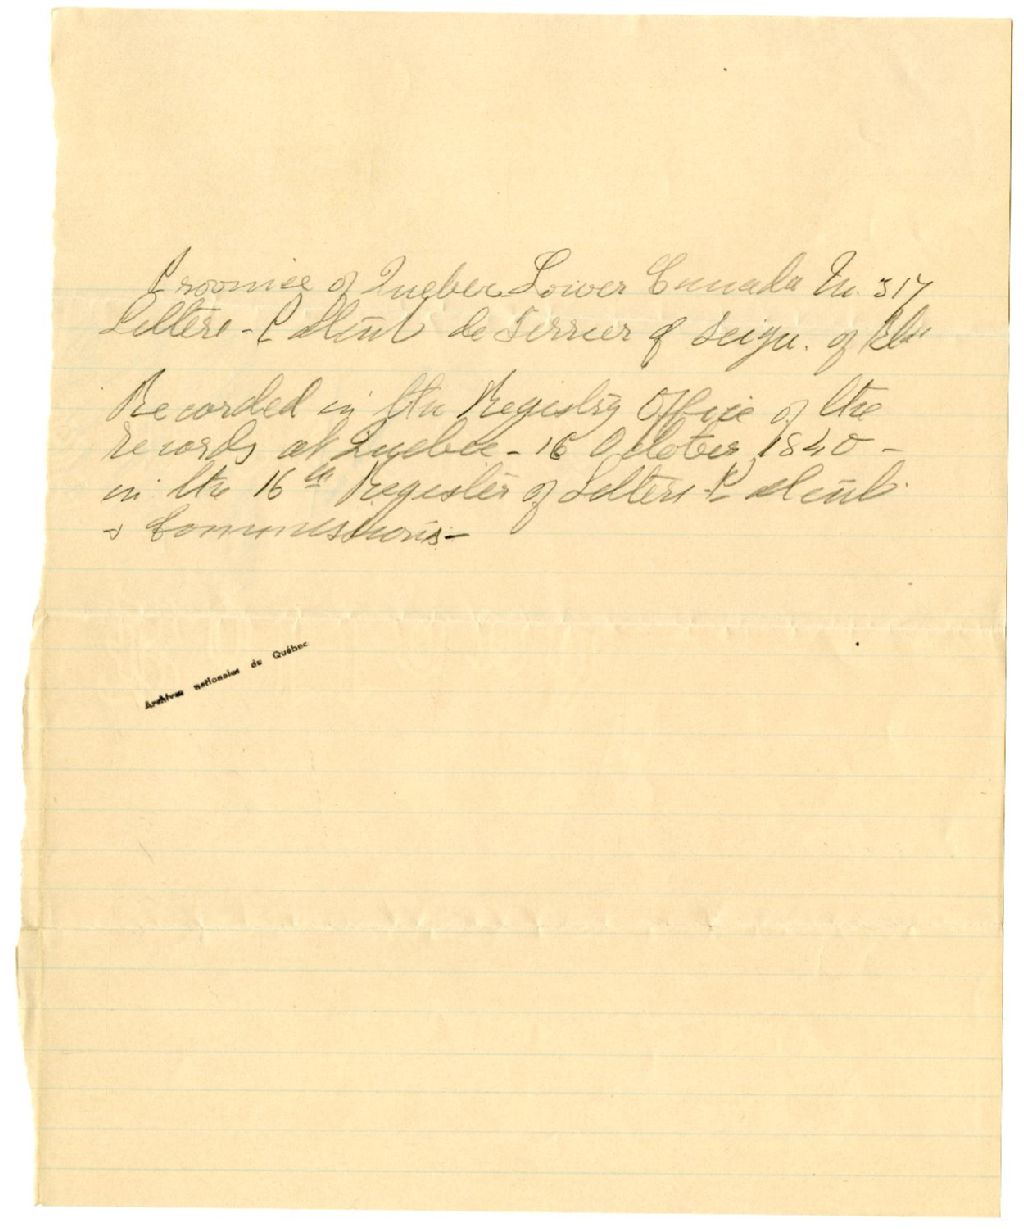 Province of Quebec Lower Canada In. 317
Letters - Patent de Terrier of Seign. of
Recorded in the Registry Office of the
records at Quebec - 16 October 1840 -
in the 16th Register of Letters Patent
& Commissions -
Archives nationales de Québec